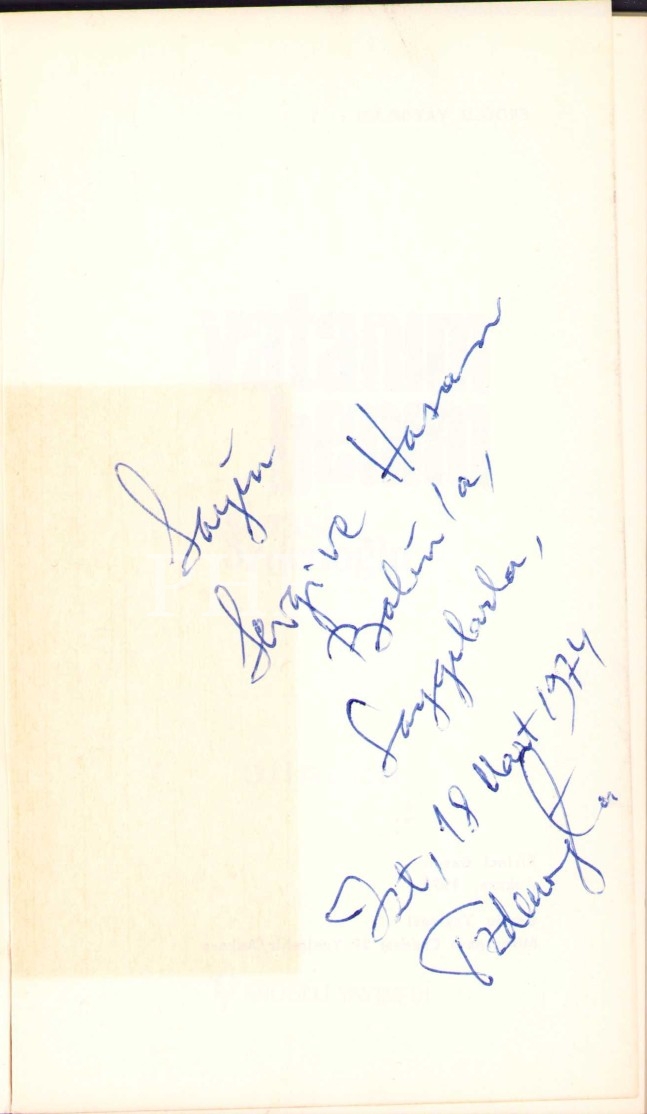 Sayın
Sevgi ve Hasan
Balın'a,
Saygılarla,
İst, 18 Mart 1974